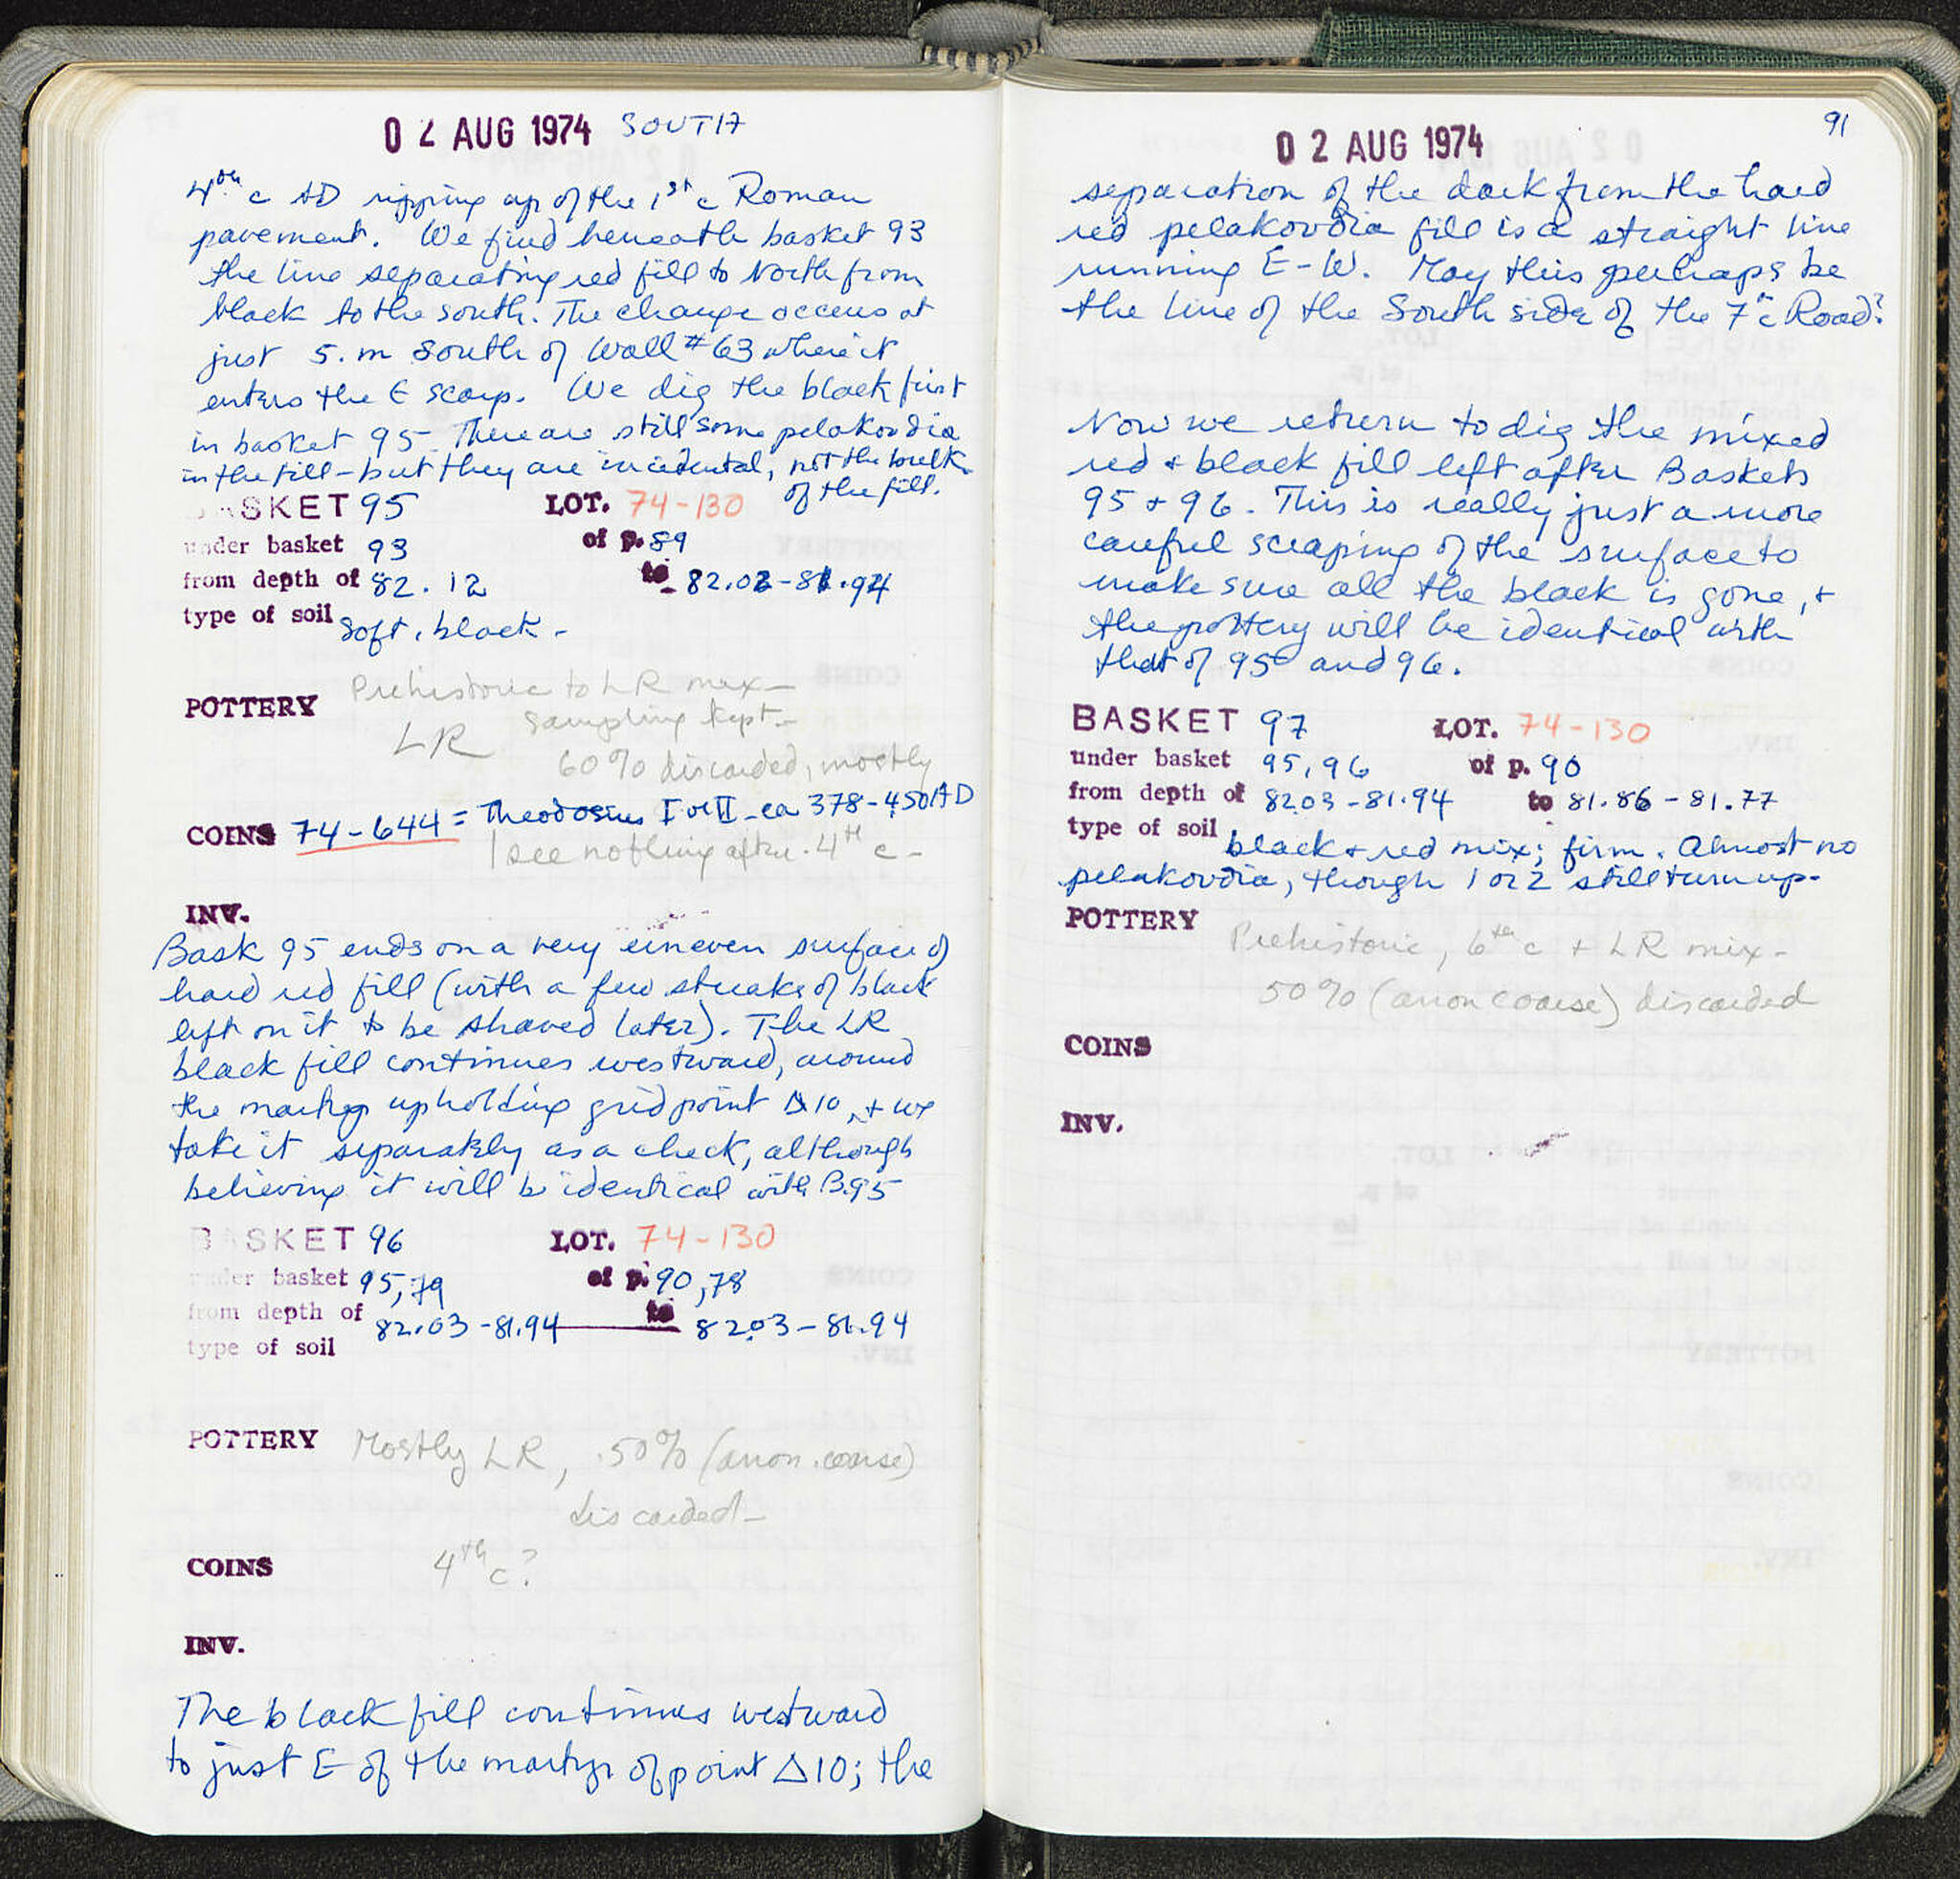 02 AUG 1974 SOUTH
4th c AD ripping up of the 1st c Roman
pavement. We find beneath basket 93
the line separating red fill to North from
black to the south. The change occurs at
just 5. m South of Wall #63 where it
enters the E scarp. We dig the black first
in basket 95 There are still some pelakoudia
in the fill - but they are incidental, not the bulk
of the fill.
BASKET 95 LOT. 74-130
under basket 93 of p. 89
from depth of 82.12 to 82.03-81.94
type of soil Soft, black -
POTTERY Prehistoric to LR mix -
LR sampling kept -
60% discarded, mostly
COINS 74-644 = Theodosius I or II - ca 378-450 AD
I see nothing after 4th c -
INV.
Bask 95 ends on a very uneven surface of
hard red fill (with a few streaks of black
left on it to be shaved later). The LR
black fill continues westward, around
the martyr upholding grid point Δ10, + we
take it separately as a check, although
believing it will be identical with B.95
BASKET 96 LOT. 74-130
under basket 95, 79 of p. 90, 78
from depth of 82.03-81.94 to 82.03-81.94
type of soil
POTTERY Mostly LR, 50% (anon. coarse)
discarded -
COINS 4th c?
INV.
The black fill continues westward
to just E of the martyr of point Δ10; the
91
02 AUG 1974
separation of the dark from the hard
red pelakoudia fill is a straight line
running E-W. May this perhaps be
the line of the South side of the 7th c Road?
Now we return to dig the mixed
red + black fill left after Baskets
95 + 96. This is really just a more
careful scraping of the surface to
make sure all the black is gone, +
the pottery will be identical with
that of 95 and 96.
BASKET 97 LOT. 74-130
under basket 95, 96 of p. 90
from depth of 82.03-81.94 to 81.86-81.77
type of soil black + red mix; firm. Almost no
pelakoudia, though 1 or 2 still turn up.
POTTERY Prehistoric, 6th c + LR mix -
50% (anon coarse) discarded
COINS
INV.